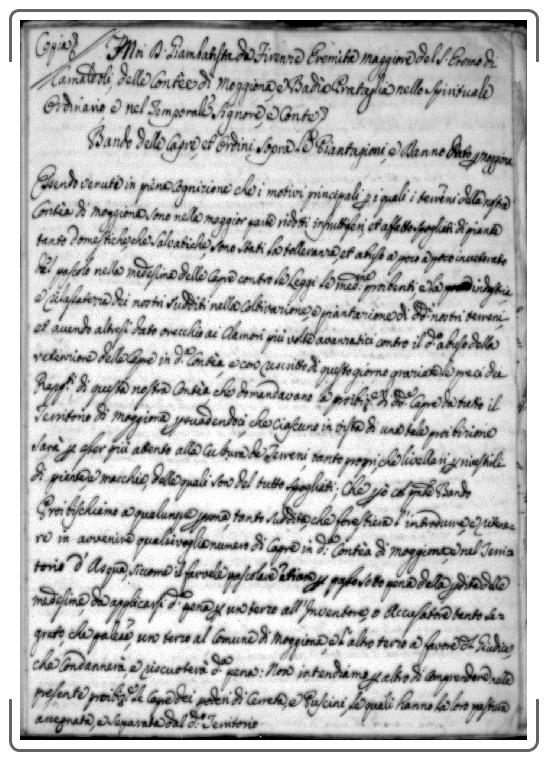 Copia
Noi D: Giambatista da Firenze Eremita Maggiore del S: Eremo di
Camaldoli, delle Contèe di Moggiona, e Badia Prataglia nello Spirituale
Ordinario, e nel Temporale Signore, e Conte
Bando delle Capre, et Ordini Sopra le Piantagioni, e Banno Moggiona
Essendo venuti in piena Cognizione che i motivi principali p i quali i terreni della nostra
Contèa di Moggiona sono nella maggior parte ridotti infruttiferi et affatto spogliati di piante
tanto domestiche che salvatiche, sono stati la tolleranza et abuso a poco a poco inveterato
del pascolo nelle medesime delle Capre contro le Leggi le med:me proibenti e la
e dei nostri sudditi nella Coltivazione e piantazione di dd: nostri terreni,
et avendo altresì dato orecchio ai Clamori più volte avanzatici contro il d:o abuso della
delle Capre in d:a Contèa, e con rescritto di questo giorno graziate le preci dei
Rapp:ti di questa nostra Contèa che domandavano la proibiz:e di dd:e Capre da tutto il
Territorio di Moggiona, persuadendoci, che ciascuno in vista di una tale proibizione
sarà p esser più attento alla Cultura de Terreni tanto proprj che livellarj, p rivestirli
di piante e macchie, delle quali son del tutto spogliati; Che p ciò col pnte Bando
Proibischiamo a qualunque psona tanto suddita che forestiera l'introdurre, e ritene-
re in avvenire qualsivoglia numero di Capre in d:a Contèa di Moggiona, e nel Terri-
torio d'Asqua, siccome il farvele pascolare p passo sotto pena della pdita delle
medesime da applicarsi d:a pena p un terzo all'Inventore, o Accusatore tanto se-
greto che palese, un terzo al Comune di Moggiona, e l'altro terzo a favore del Giudice,
che Condannerà, e riscuoterà d:a pena: Non intendiamo p altro di comprendere nella
presente proibiz:e le Capre dei poderi di Cerreta, e Fuscini, le quali hanno la loro pastura
assegnata, e separata dal d:o Territorio